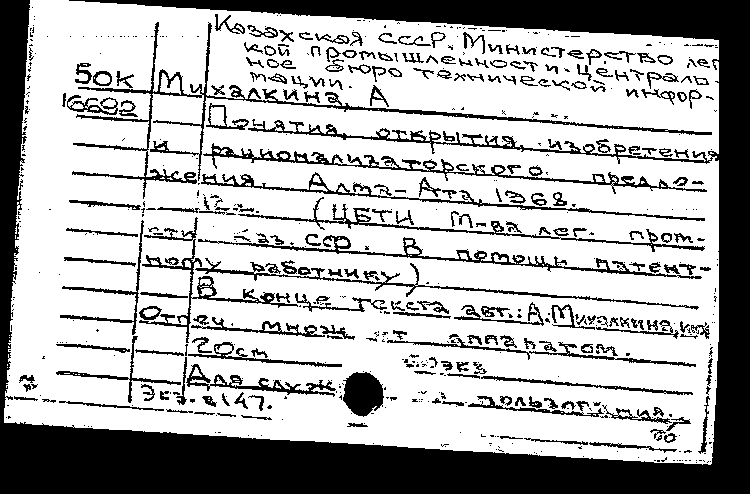 Казахская СССР. Министерство лег
кой промышленности. Централь-
ное бюро технической инфор-
мации.
50К Михалкина, А
16682
Понятия, открытия, изобретения
и рационализаторского предло-
жения. Алма-Ата, 1968.
12 (ЦБТИ М-ва лег. пром-
сти Каз. ССР. В помощи патент-
ному работнику)
В конце текста авт.: А. Михалкина,
Отпеч. множ аппаратом.
20см экз
Для служ пользования.
Экз. в147.